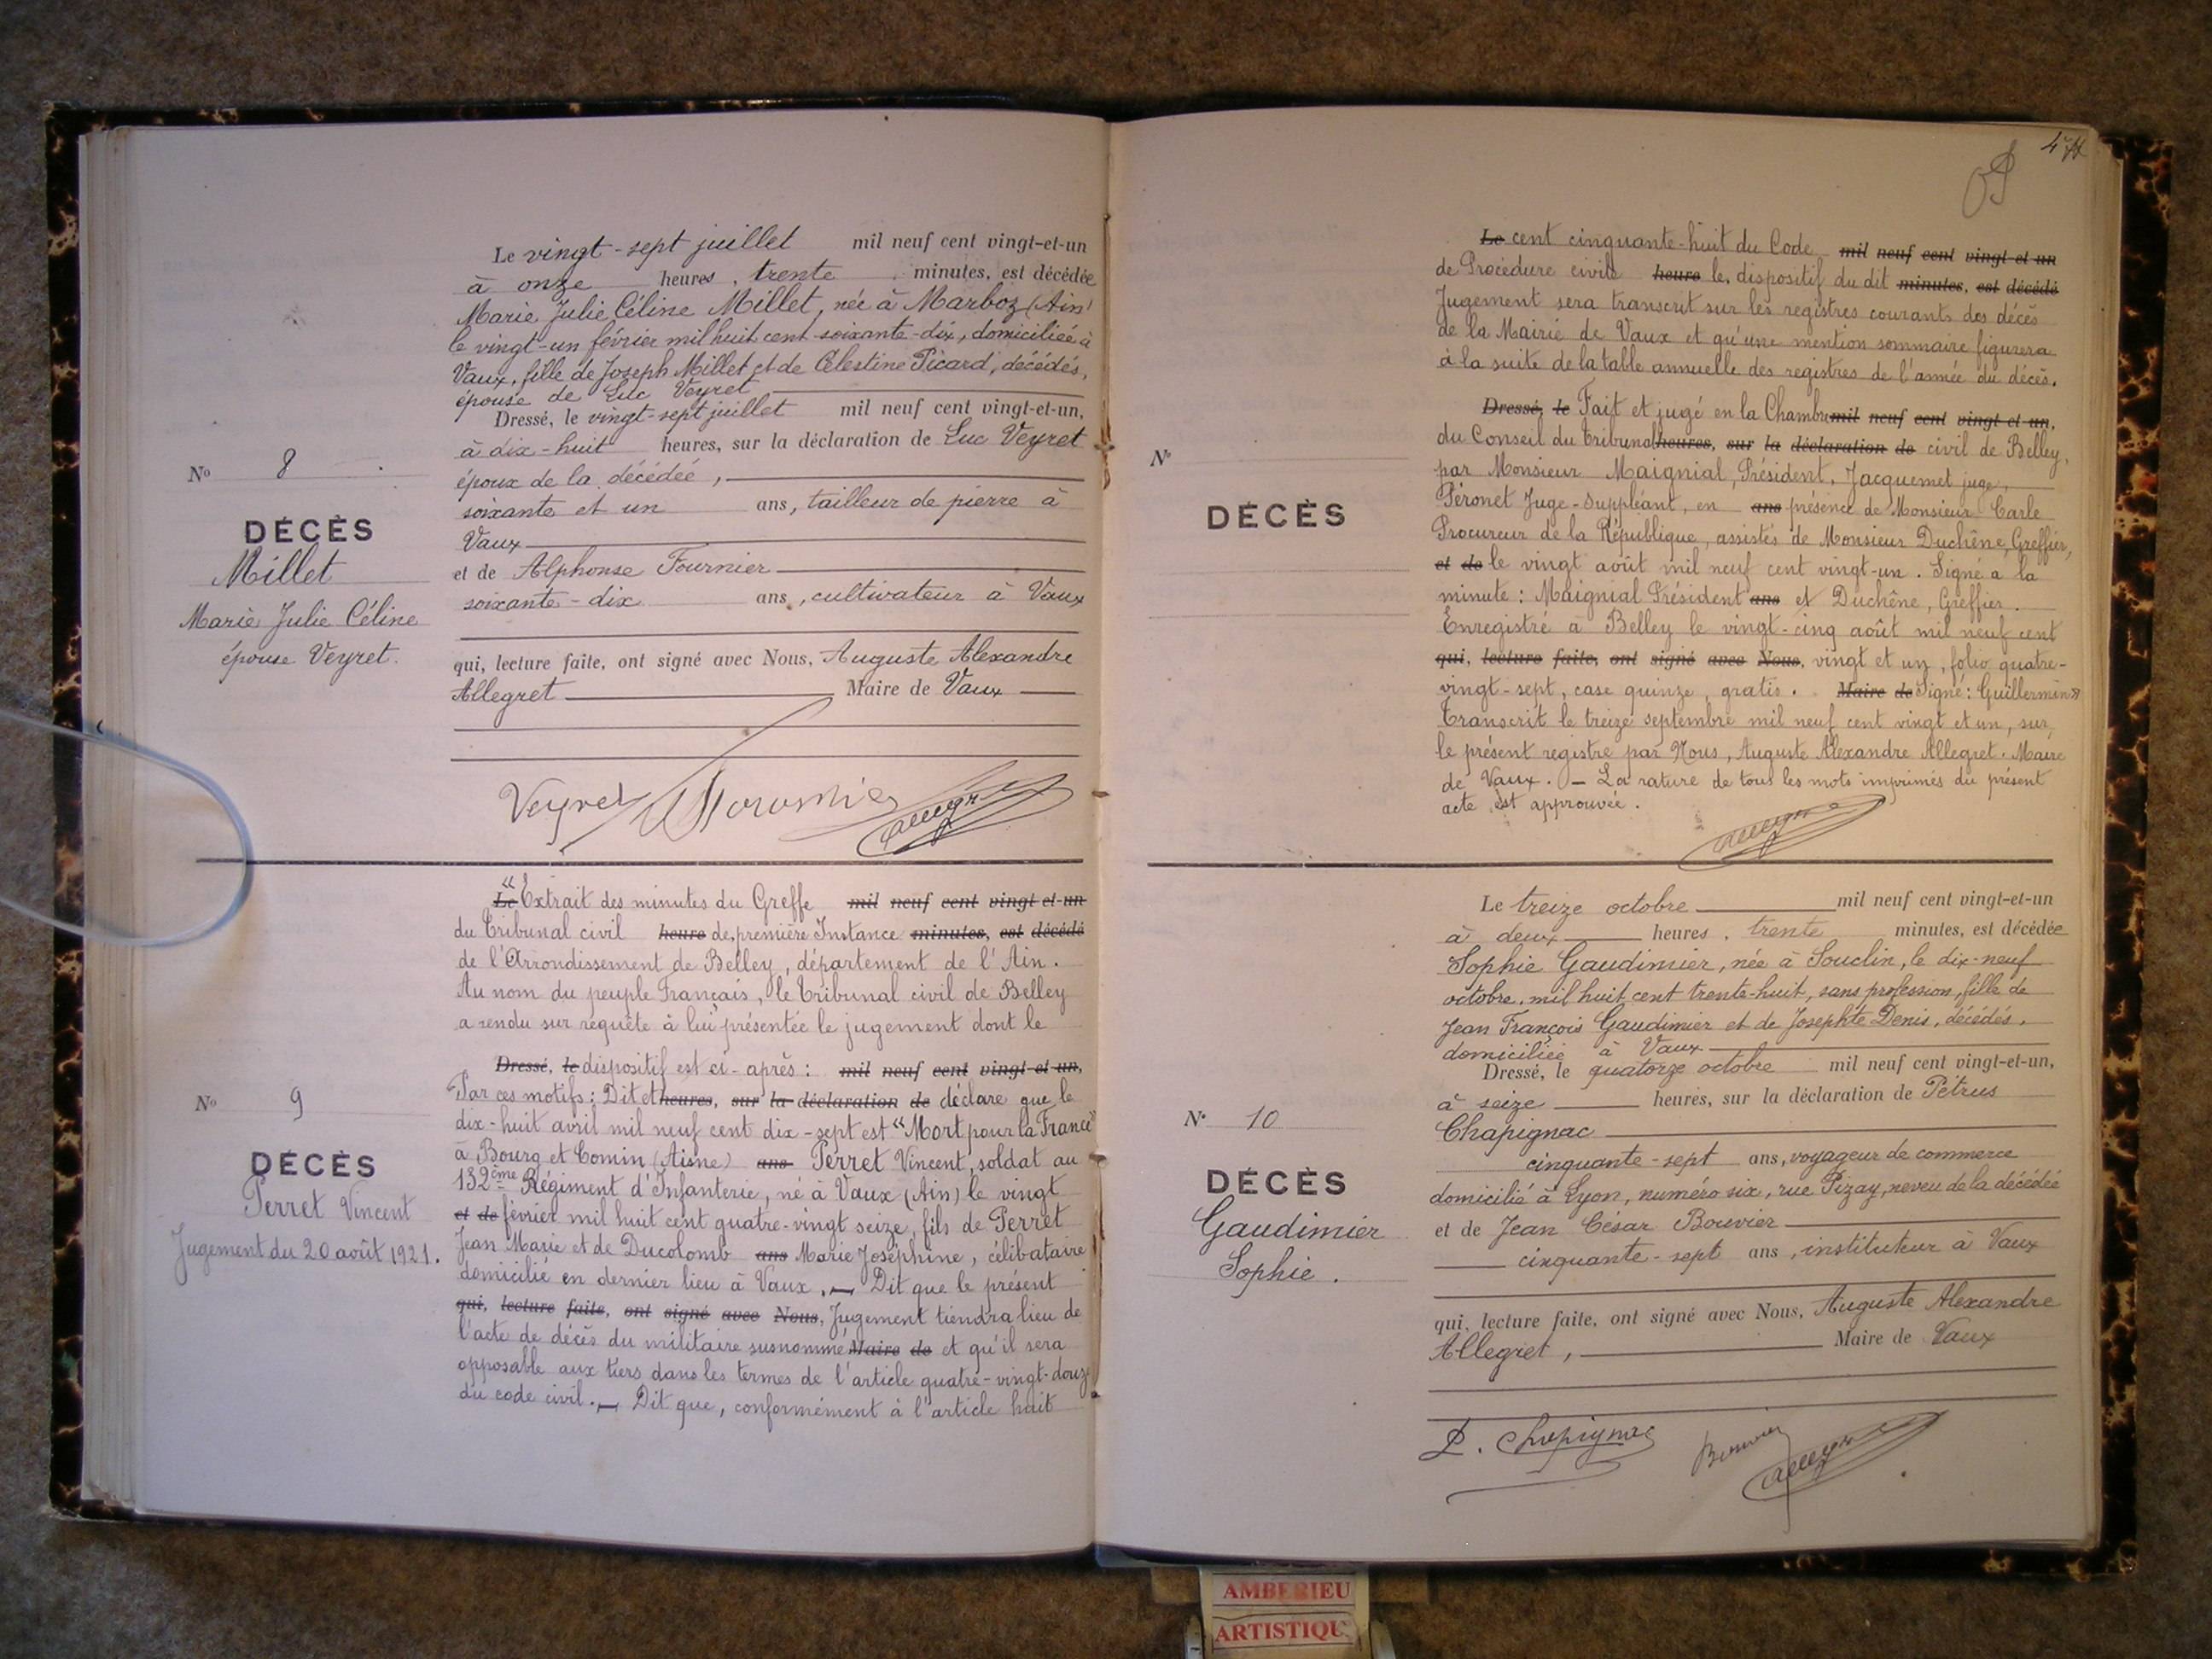 Le vingt-sept juillet mil neuf cent vingt-et-un
à onze heures, trente minutes, est décédée
Marie Julie Céline Millet, née à Marboz (Ain)
le vingt-un février mil huit cent soixante-dix, domiciliée à
Vaux, fille de Joseph Millet et de Célestine Picard, décédés,
épouse de Luc Veyret
Dressé, le vingt-sept juillet mil neuf cent vingt-et-un,
à dix-huit heures, sur la déclaration de Luc Veyret
époux de la décédée,
soixante et un ans, tailleur de pierre à
Vaux
et de Alphonse Fournier
soixante-dix ans, cultivateur à Vaux
qui, lecture faite, ont signé avec Nous, Auguste Alexandre
Allegret Maire de Vaux
Nº 8
DÉCÈS
Millet
Marie Julie Céline
épouse Veyret.
Veyret
«
Le Extrait des minutes du Greffe mil neuf cent vingt-et-un
du Tribunal civil heure de première Instance minutes, est décédé
de l'Arrondissement de Belley, département de l'Ain.
Au nom du peuple Français, le Tribunal civil de Belley
a rendu sur requête à lui présentée le jugement dont le
Dressé, le dispositif est ci-après : mil neuf cent vingt-et-un,
Par ces motifs : Dit et heures, sur la déclaration de déclare que le
dix-huit avril mil neuf cent dix-sept est "Mort pour la France"
à Bourg et Comin (Aisne) ans Perret Vincent, soldat au
132ème Régiment d'Infanterie, né à Vaux (Ain) le vingt
et de février mil huit cent quatre-vingt seize, fils de Perret
Jean Marie et de Ducolomb ans Marie Joséphine, célibataire
domicilié en dernier lieu à Vaux. — Dit que le présent
qui, lecture faite, ont signé avec Nous, Jugement tiendra lieu de
l'acte de décès du militaire susnommé Maire de et qu'il sera
opposable aux tiers dans les termes de l'article quatre-vingt-douze
du code civil. — Dit que, conformément à l'article huit
Nº 9
DÉCÈS
Perret Vincent
Jugement du 20 août 1921.
Le cent cinquante-huit du Code mil neuf cent vingt-et-un
de Procédure civile heure le dispositif du dit minutes, est décédé
Jugement sera transcrit sur les registres courants des décès
de la Mairie de Vaux et qu'une mention sommaire figurera
à la suite de la table annuelle des registres de l'année du décès.
Dressé, le Fait et jugé en la Chambre mil neuf cent vingt-et-un,
du Conseil du Tribunal heures, sur la déclaration de civil de Belley,
par Monsieur Maignial, Président, Jacquemet juge,
Péronet Juge-Suppléant, en ans présence de Monsieur Carle
Procureur de la République, assistés de Monsieur Duchêne, Greffier,
et de le vingt août mil neuf cent vingt-un. Signé à la
minute : Maignial Président ans et Duchêne, Greffier.
Enregistré à Belley le vingt-cinq août mil neuf cent
qui, lecture faite, ont signé avec Nous, vingt et un, folio quatre-
vingt-sept, case quinze, gratis. Maire de Signé : Guillermin »
Transcrit le treize septembre mil neuf cent vingt et un, sur
le présent registre par Nous, Auguste Alexandre Allegret. Maire
de Vaux. — La rature de tous les mots imprimés du présent
acte est approuvée.
Nº
DÉCÈS
Le treize octobre mil neuf cent vingt-et-un
à deux heures, trente minutes, est décédée
Sophie Gaudimier, née à Souclin, le dix-neuf
octobre mil huit cent trente-huit, sans profession, fille de
Jean François Gaudimier et de Josephte Denis, décédés,
domiciliée à Vaux
Dressé, le quatorze octobre mil neuf cent vingt-et-un,
à seize heures, sur la déclaration de Pétrus
Chapignac
cinquante-sept ans, voyageur de commerce
domicilié à Lyon, numéro six, rue Pizay, neveu de la décédée
et de Jean César Bouvier
cinquante-sept ans, instituteur à Vaux
qui, lecture faite, ont signé avec Nous, Auguste Alexandre
Allegret, Maire de Vaux
Nº 10
DÉCÈS
Gaudimier
Sophie.
P. Chapignac Bouvier
AMBERIEU
ARTISTIQU